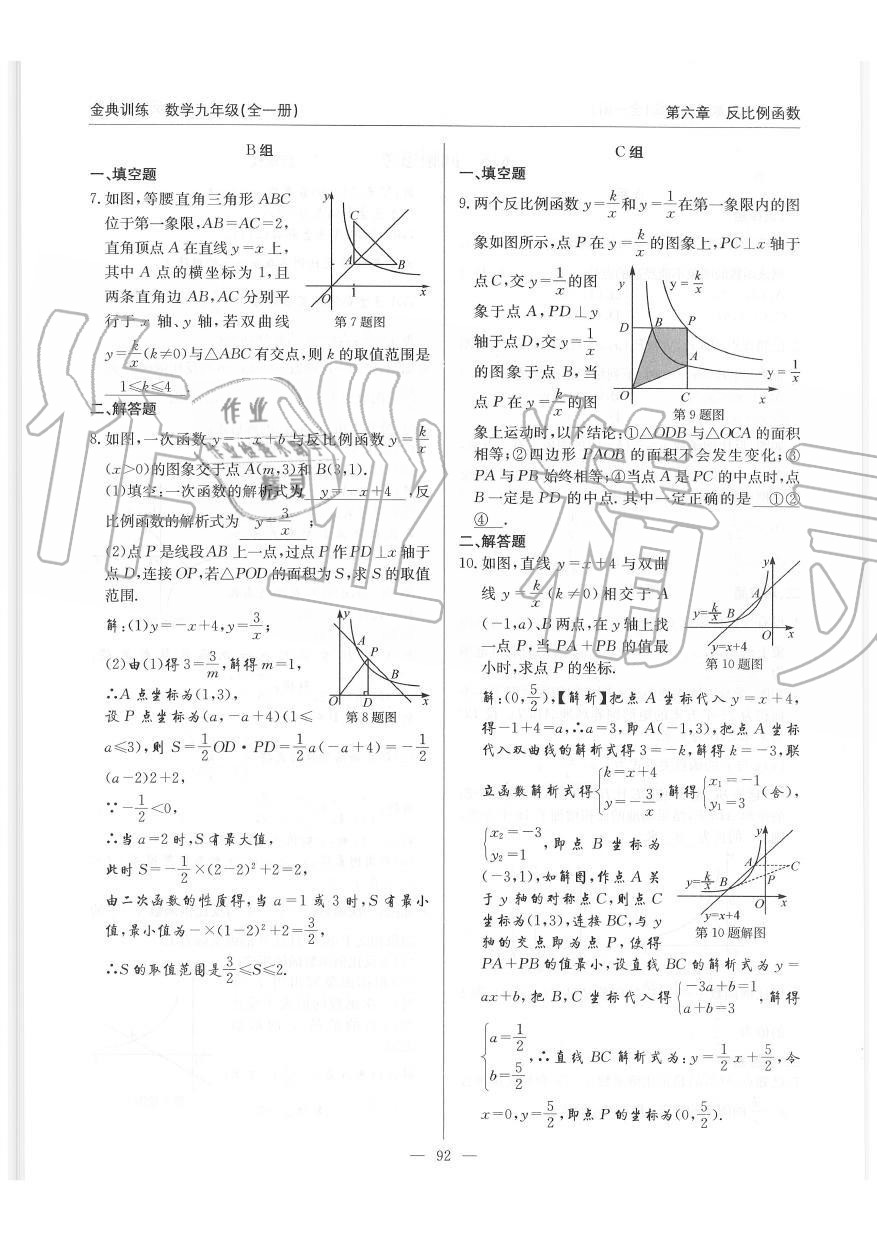 金典训练 数学九年级(全一册)
第六章 反比例函数
B组
一、填空题
7.如图,等腰直角三角形 ABC
位于第一象限,AB=AC=2,
直角顶点 A 在直线 y=x 上,
其中 A 点的横坐标为 1,且
两条直角边 AB,AC 分别平
行于 x 轴、y 轴,若双曲线
y C A B O 1 x
第7题图
y=k/x(k≠0)与△ABC 有交点,则 k 的取值范围是
1≤k≤4 .
二、解答题
8.如图,一次函数 y=-x+b 与反比例函数 y=k/x
(x>0)的图象交于点 A(m,3)和 B(3,1).
(1)填空:一次函数的解析式为 y=-x+4 ,反
比例函数的解析式为 y=3/x ;
(2)点 P 是线段 AB 上一点,过点 P 作 PD⊥x 轴于
点 D,连接 OP,若△POD 的面积为 S,求 S 的取值
范围.
解:(1)y=-x+4,y=3/x;
(2)由(1)得 3=3/m,解得 m=1,
∴A 点坐标为(1,3),
设 P 点坐标为(a,-a+4)(1≤
y A P B O D x
第8题图
a≤3),则 S=1/2OD·PD=1/2a(-a+4)=-1/2
(a-2)2+2,
∵-1/2<0,
∴当 a=2 时,S 有最大值,
此时 S=-1/2×(2-2)²+2=2,
由二次函数的性质得,当 a=1 或 3 时,S 有最小
值,最小值为-×(1-2)²+2=3/2,
∴S 的取值范围是3/2≤S≤2.
C组
一、填空题
9.两个反比例函数 y=k/x和 y=1/x在第一象限内的图
象如图所示,点 P 在 y=k/x的图象上,PC⊥x 轴于
点 C,交 y=1/x的图
象于点 A,PD⊥y
轴于点 D,交 y=1/x
的图象于点 B,当
点 P 在 y=k/x的图
y y=k/x D B P A y=1/x O C x
第9题图
象上运动时,以下结论:①△ODB 与△OCA 的面积
相等;②四边形 PAOB 的面积不会发生变化;③
PA 与 PB 始终相等;④当点 A 是 PC 的中点时,点
B 一定是 PD 的中点.其中一定正确的是 ①②
④ .
二、解答题
10.如图,直线 y=x+4 与双曲
线 y=k/x(k≠0)相交于 A
(-1,a)、B 两点,在 y 轴上找
一点 P,当 PA+PB 的值最
小时,求点 P 的坐标.
y A y=k/x B O x y=x+4
第10题图
解:(0,5/2),【解析】把点 A 坐标代入 y=x+4,
得-1+4=a,∴a=3,即 A(-1,3),把点 A 坐标
代入双曲线的解析式得 3=-k,解得 k=-3,联
立函数解析式得{k=x+4 y=-3/x,解得{x₁=-1 y₁=3(舍),
{x₂=-3 y₂=1,即点 B 坐标为
(-3,1),如解图,作点 A 关
于 y 轴的对称点 C,则点 C
坐标为(1,3),连接 BC,与 y
轴的交点即为点 P,使得
y A C y=k/x B P O x y=x+4
第10题解图
PA+PB 的值最小,设直线 BC 的解析式为 y=
ax+b,把 B,C 坐标代入得{-3a+b=1 a+b=3,解得
{a=1/2 b=5/2,∴直线 BC 解析式为:y=1/2x+5/2,令
x=0,y=5/2,即点 P 的坐标为(0,5/2).
— 92 —
作业精灵